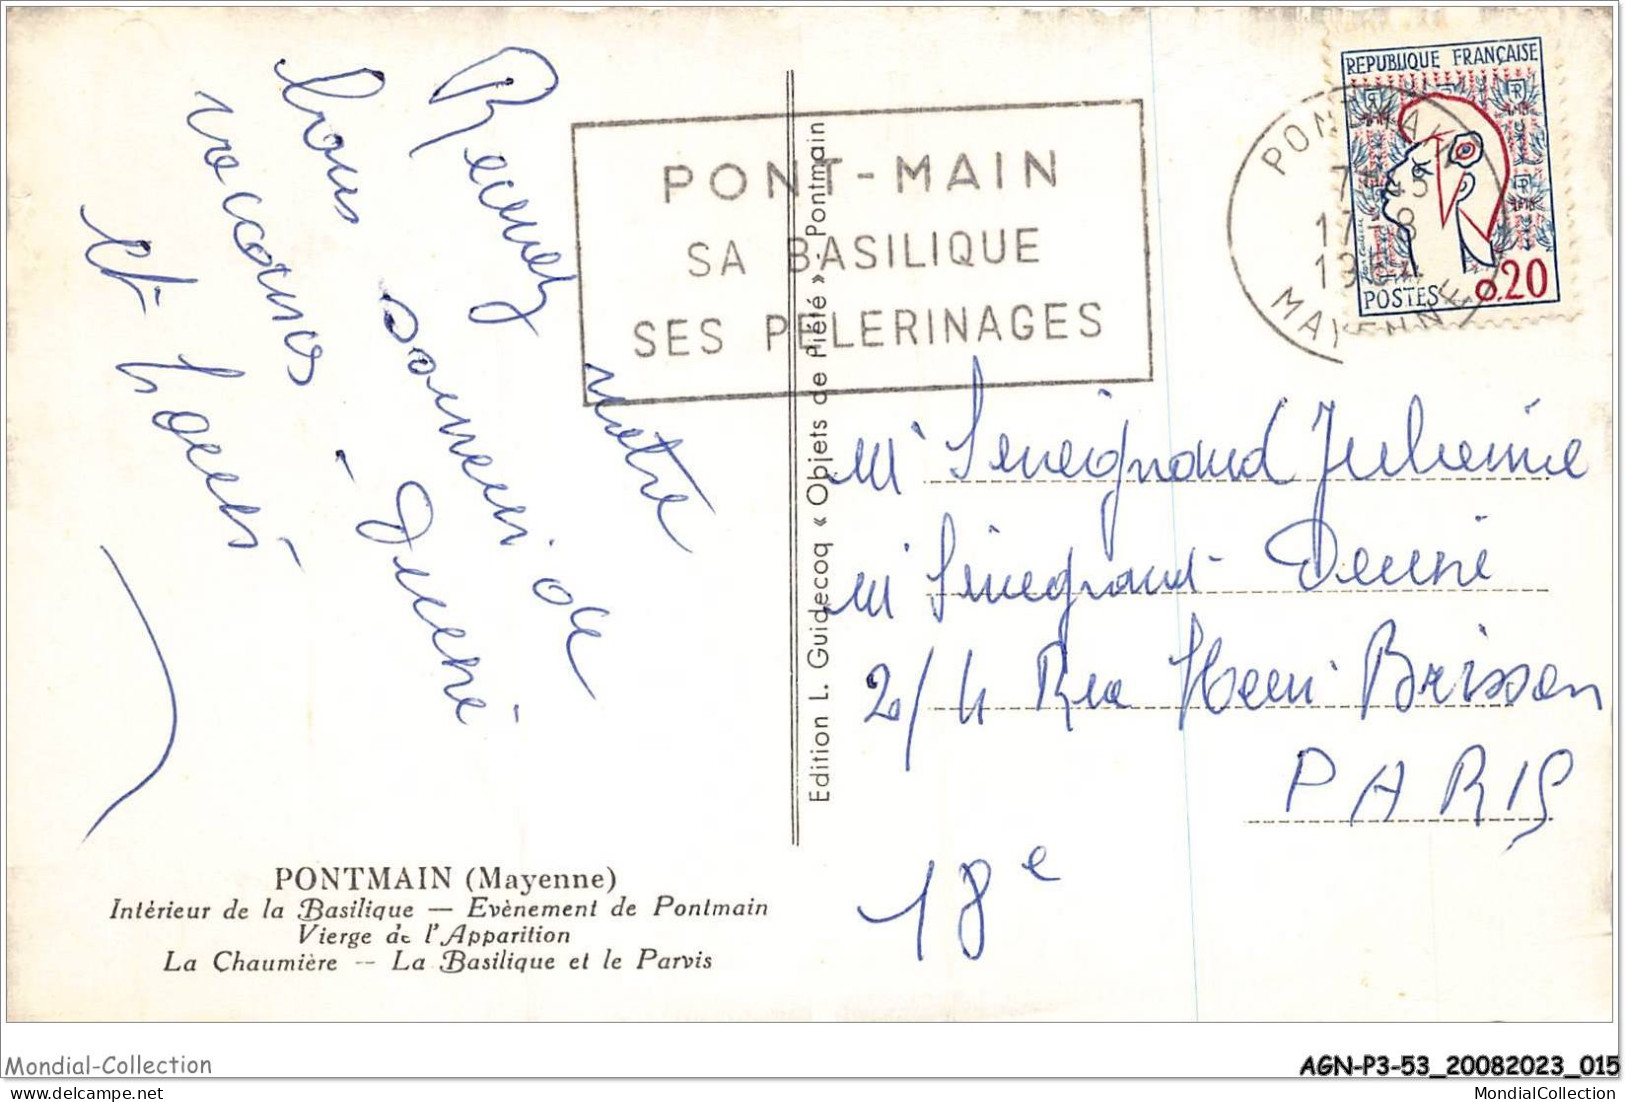 Recevez notre
bons souvenir de
vaccances - Denise
et Louis
PONTMAIN (Mayenne)
Intérieur de la Basilique — Evènement de Pontmain
Vierge de l'Apparition
La Chaumière -- La Basilique et le Parvis
Edition L. Guidecoq « Objets de Piété » - Pontmain
PONT-MAIN
SA BASILIQUE
SES PELERINAGES
PONTMAIN
17-8
MAYENNE
REPUBLIQUE FRANÇAISE
POSTES 0,20
Julienne
Denise
2/4 Rue Henri Brisson
PARIS
18e
Mondial-Collection
AGN-P3-53_20082023_015
MondialCollection